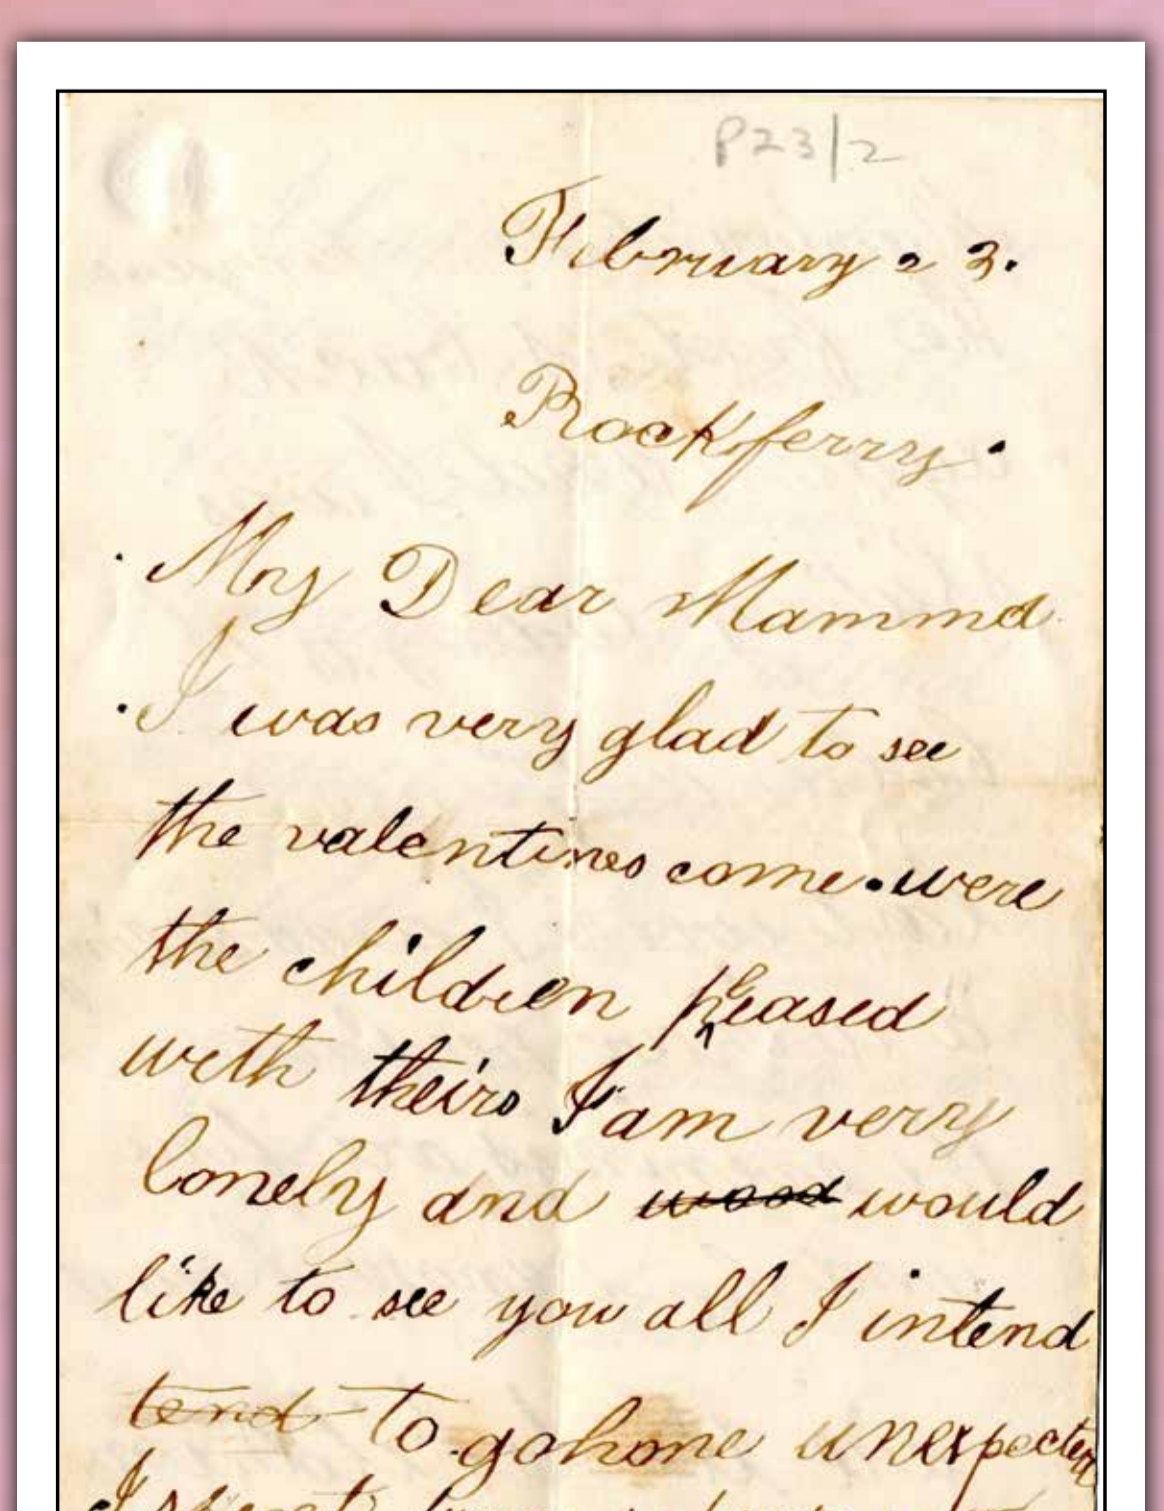 P23/2
February 23.
Rockferry.
My Dear Mamma
I was very glad to see
the valentines come. were
the children pleased
with theirs I am verry
lonely and wood would
like to see you all I intend
tend to go home unexpected
I